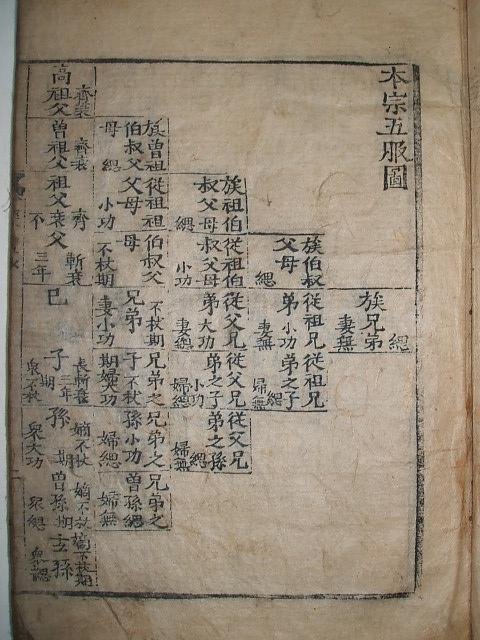 本宗五服圖
族兄弟
緦
妻無
族伯叔
父母
緦
從祖兄
弟
小功
妻無
從祖兄
弟之子
緦
婦無
族祖伯
叔父母
緦
從祖伯
叔父母
小功
從父兄
弟
大功
妻緦
從父兄
弟之子
小功
婦緦
從父兄
弟之孫
緦
婦無
族曾祖
伯叔父
母
緦
從祖祖
父母
小功
伯叔父
母
不杖期
兄弟
不杖期
妻小功
兄弟之
子
不杖
期
婦大功
兄弟之
孫
小功
婦緦
兄弟之
曾孫
緦
婦無
高祖父
齊衰
曾祖父
齊衰
祖父
齊衰
不
父
斬衰
三年
己
子
長斬衰
三年
期
衆不杖
孫
嫡不杖
期
衆大功
曾孫
嫡不杖
期
衆緦
玄孫
嫡不杖期
衆緦